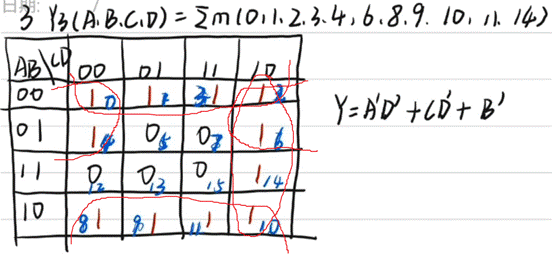 日期:
3 Y3(A.B.C.D) = Σm(0,1.2.3.4,6.8.9.10,11.14)
AB\CD 00 01 11 10
00 1 0 1 1 3 1 1 2
01 1 4 0 5 0 7 1 6
Y=A'D'+CD'+B'
11 0 12 0 13 0 15 1 14
10 8 1 9 1 11 1 1 10